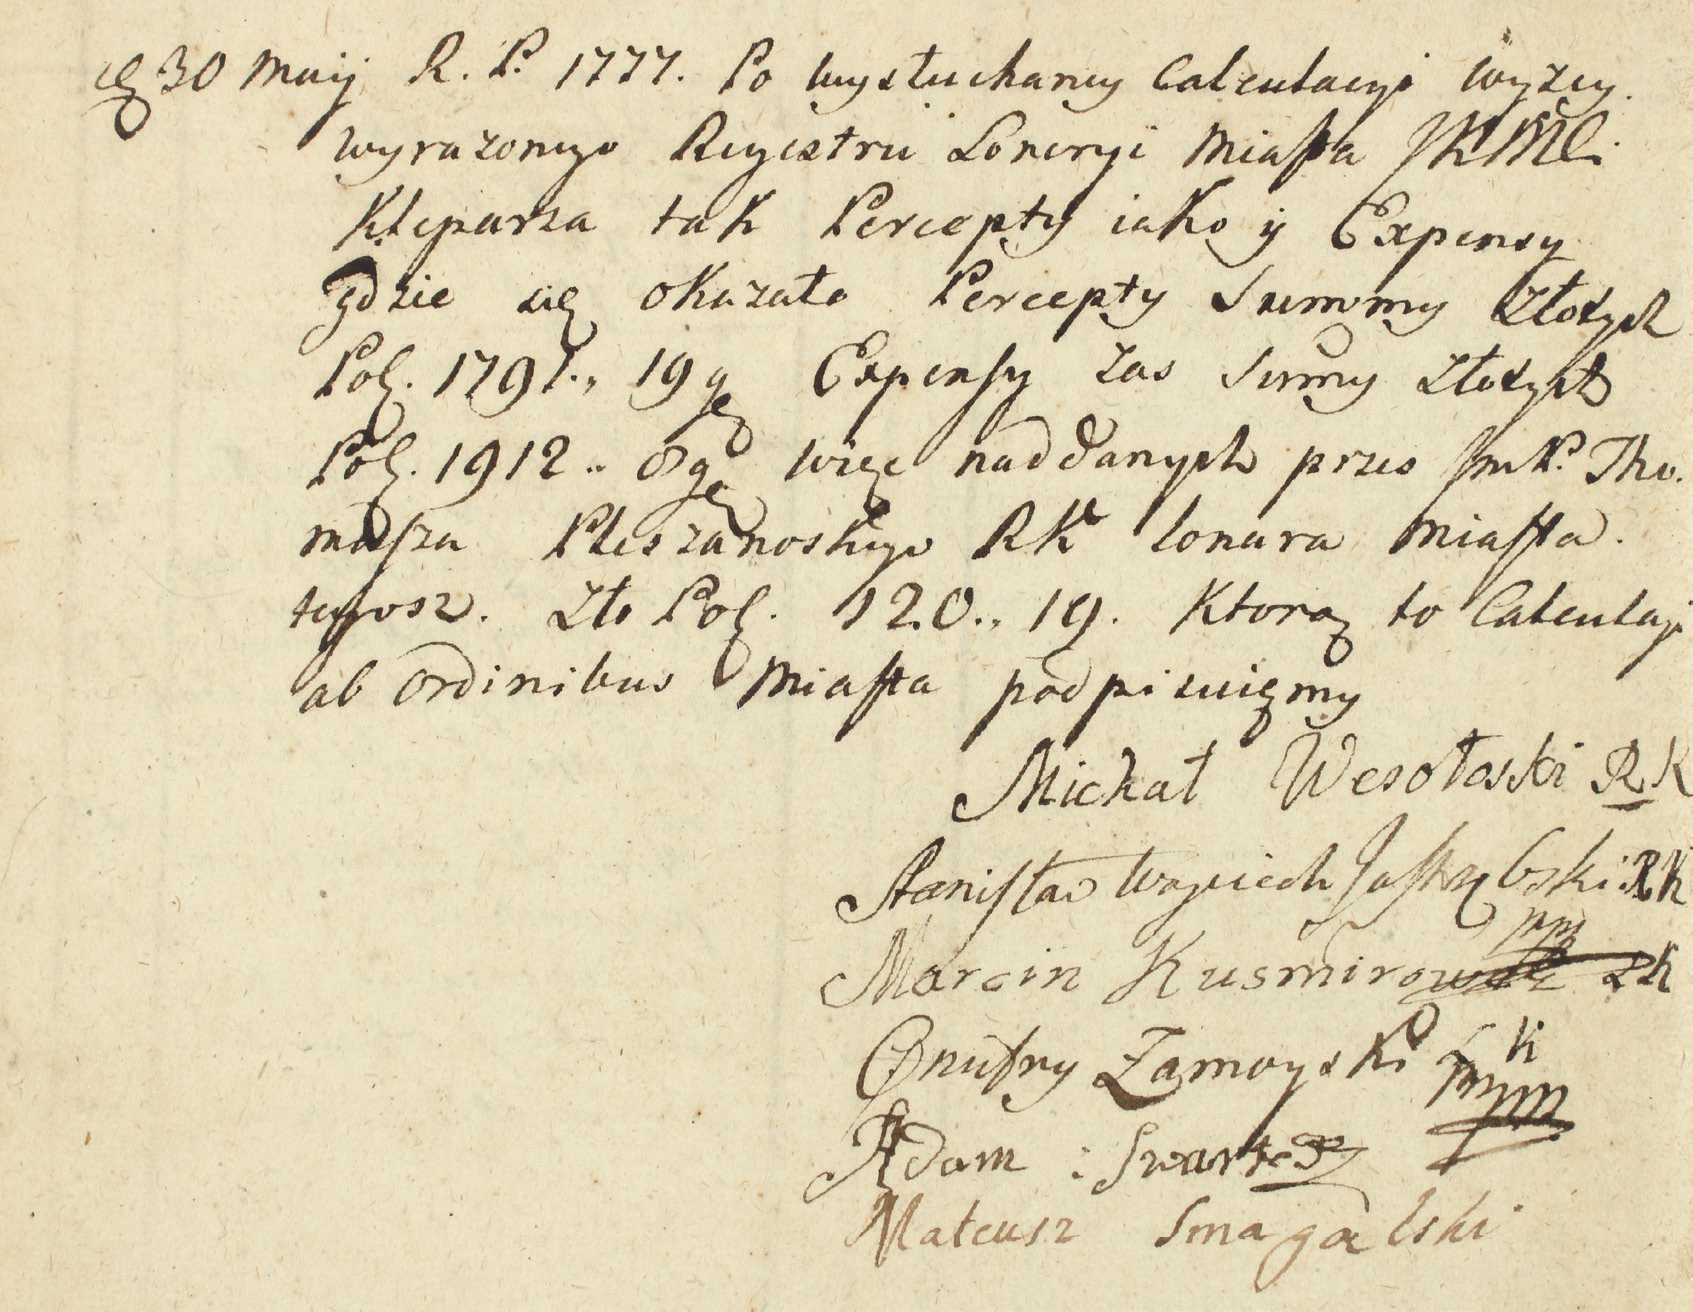 30 Maij R. P. 1777. Po wysłuchaney Calculacyi wyżey.
wyrazonego Regestru Loneryi Miasta JKMCi
Kleparza tak Percepty iako y Expensy
gdzie się okazało Percepty Summy Złotych
Pol. 1791., 19 g Expensy zas Sumy Złotych
Pol. 1912.. 8 g więc naddanych przes ImP. Tho.
masza Pleszanoskiego RK lonara Miasta.
tegosz. Zło Pol. 120., 19. Ktorą to Calculaji
ab Ordinibus Miasta podpisuięmy
Michał Wesołoski RK
Stanisław Woyciech Jastrzębski RK
Marcin Kusmirowski ŁK
Onufry Zamoyski Ł K
mpp
Adam : Swartz
Mateusz Smagalski